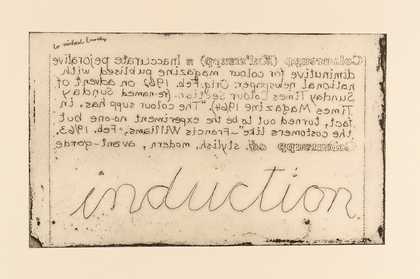 to
Coloursupp n Inaccurate pejorative
diminutive for colour magazine publised with
national newspaper. Orig. Feb. 1962 on advent of
Sunday Times Colour Section - (renamed Sunday
Times Magazine 1964). "The colour supp has, in
fact, turned out to be the experiment no-one but
the customers like" - Francis Williams, Feb. 1963.
Coloursupp adj. stylish, modern, avant-garde
induction